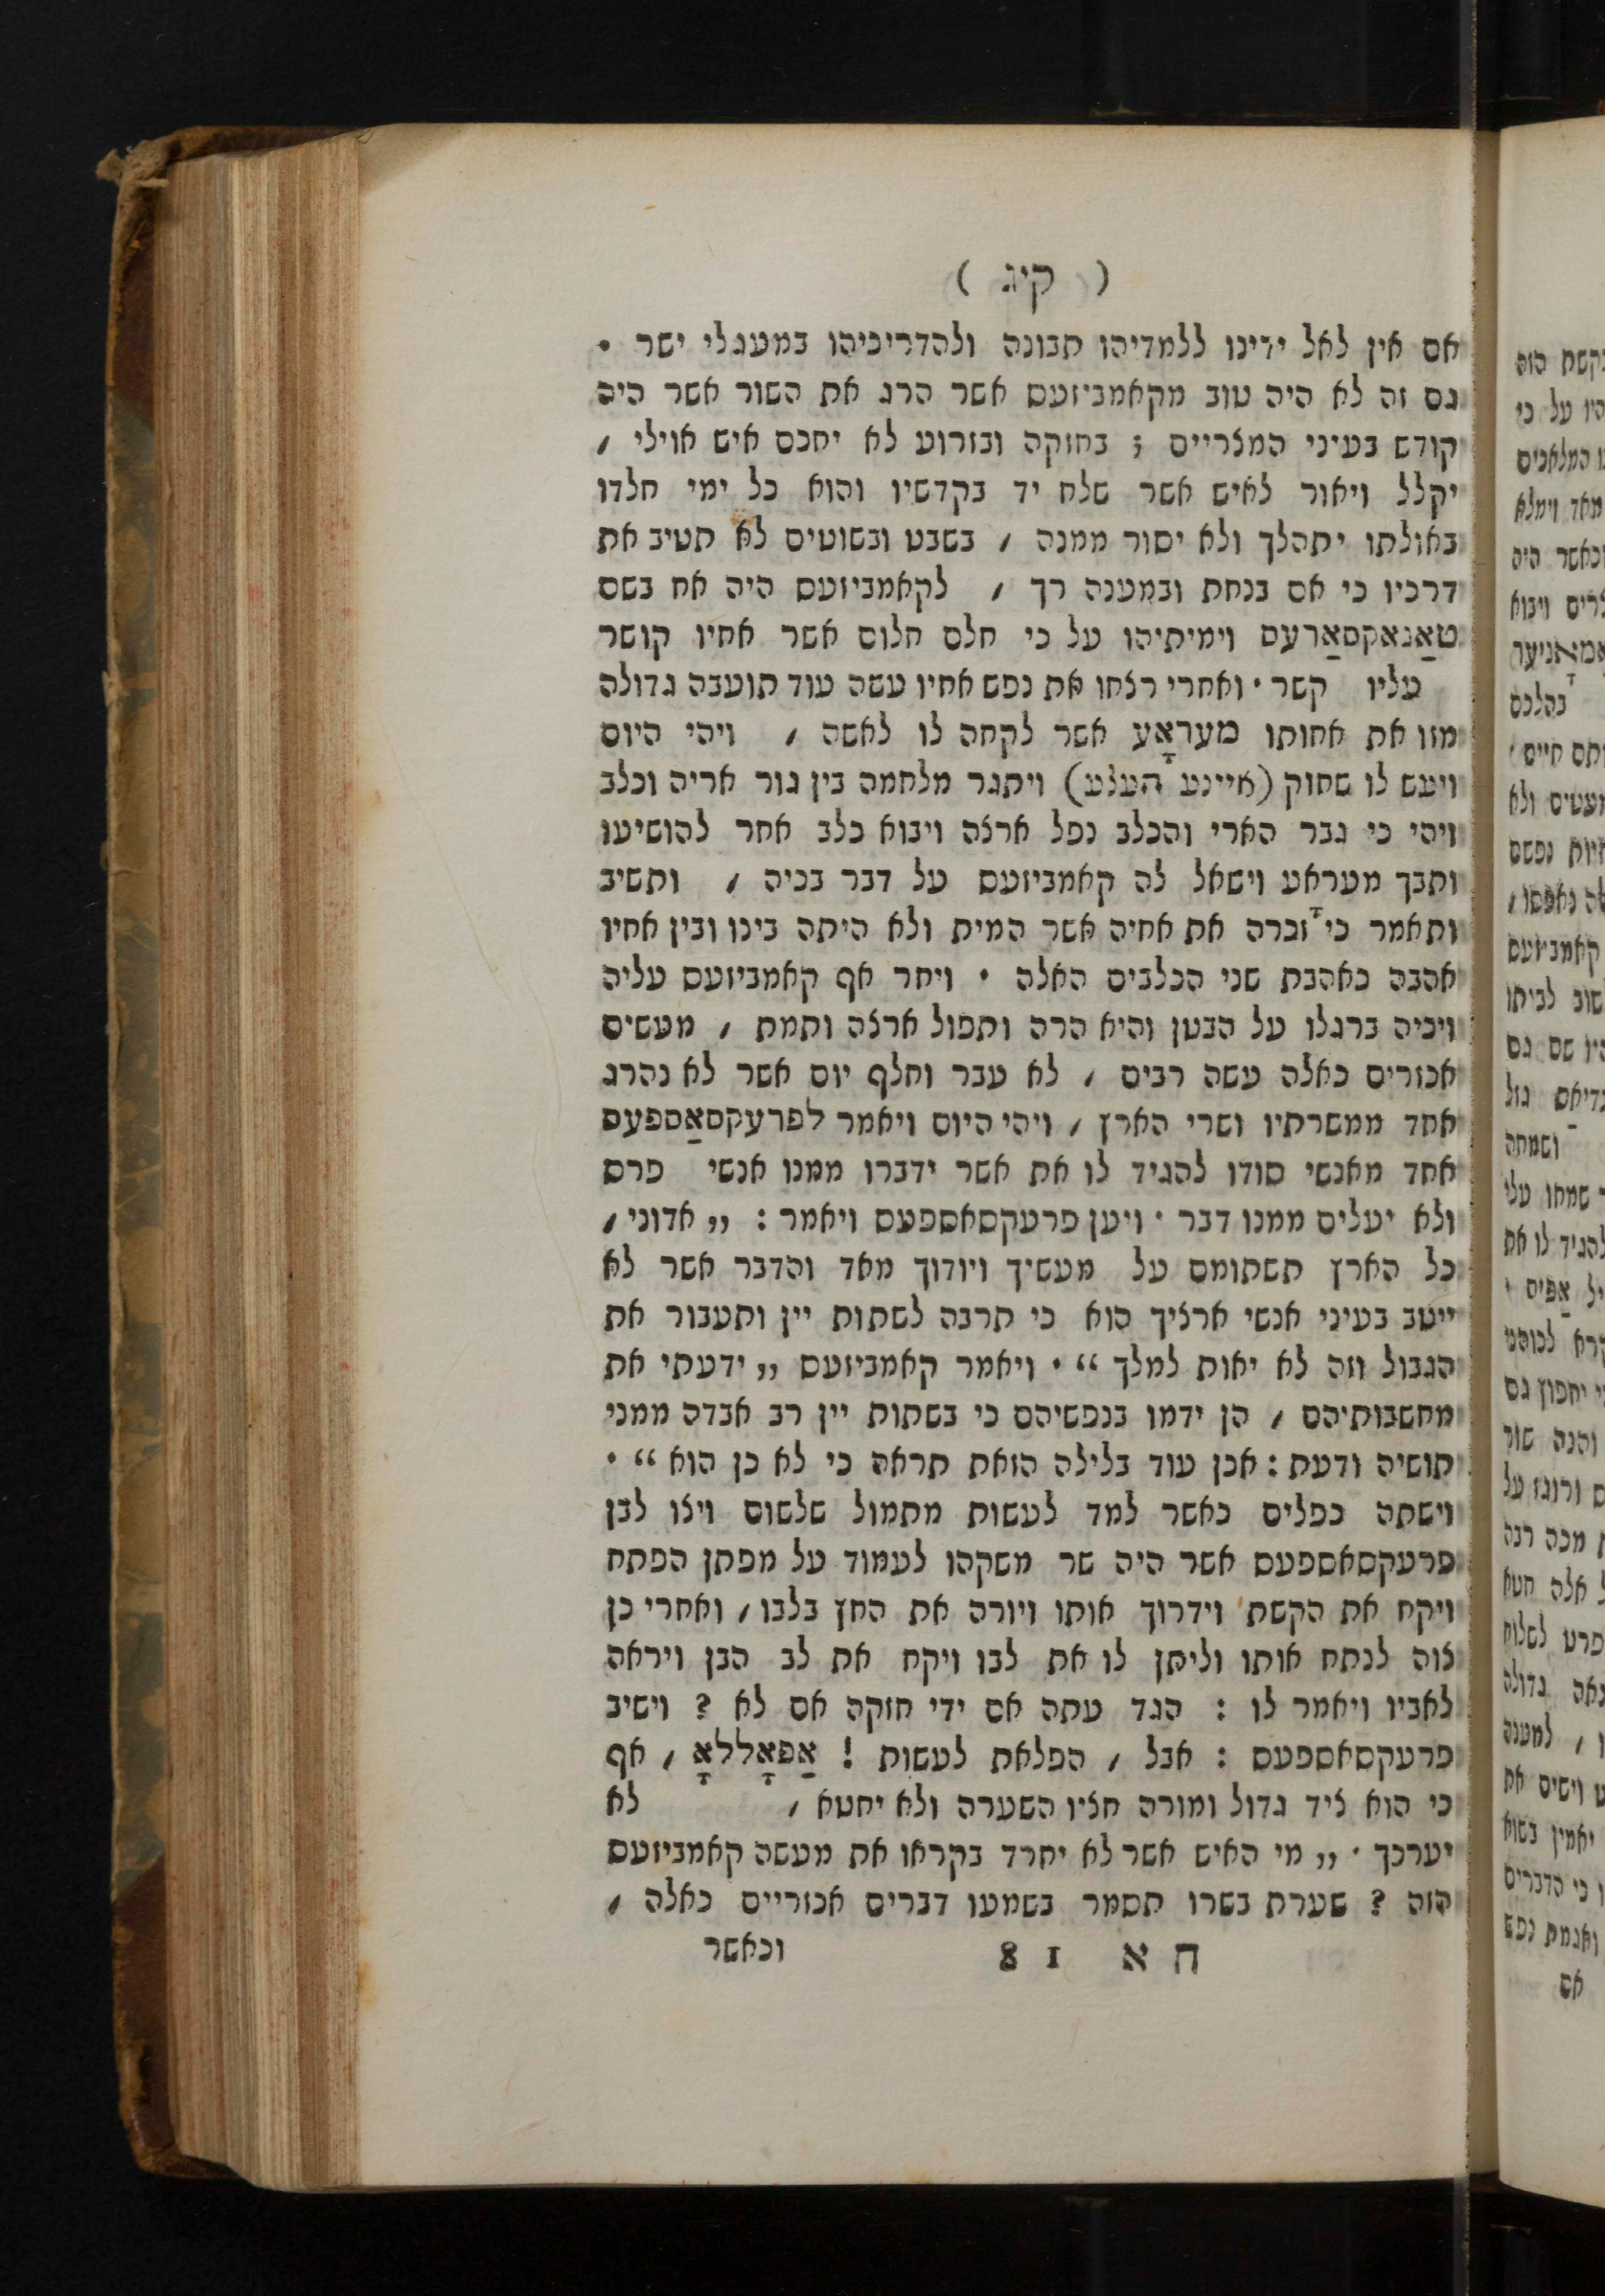 ( קיג )
אם אין לאל ידינו ללמדיהו תבונה ולהדריכיהו במעגלי ישר •
גם זה לא היה טוב מקאמביזעס אשר הרג את השור אשר היה
קודש בעיני המצריים ; בחזקה ובזרוע לא יחכם איש אוילי ,
יקלל ויאור לאיש אשר שלח יד בקדשיו והוא כל ימי חלדו
באולתו יתהלך ולא יסור ממנה , בשבט ובשוטים לא תטיב את
דרכיו כי אם בנחת ובמענה רך , לקאמביזעס היה אח בשם
טאַנאקסאַרעס וימיתיהו על כי חלם חלום אשר אחיו קושר
עליו קשר • ואחרי רצחו את נפש אחיו עשה עוד תועבה גדולה
מזו את אחותו מעראָע אשר לקחה לו לאשה , ויהי היום
ויעש לו שחוק (איינע העלע) ויתגר מלחמה בין גור אריה וכלב
ויהי כי גבר הארי והכלב נפל ארצה ויבוא כלב אחר להושיעו
ותבך מעראָע וישאל לה קאמביזעס על דבר בכיה , ותשיב
ותאמר כי זכרה את אחיה אשר המית ולא היתה בינו ובין אחיו
אהבה כאהבת שני הכלבים האלה • ויחר אף קאמביזעס עליה
ויכיה ברגלו על הבטן והיא הרה ותפול ארצה ותמת , מעשים
אכזרים כאלה עשה רבים , לא עבר וחלף יום אשר לא נהרג
אחד ממשרתיו ושרי הארץ , ויהי היום ויאמר לפרעקסאַספעס
אחד מאנשי סודו להגיד לו את אשר ידברו ממנו אנשי פרס
ולא יעלים ממנו דבר • ויען פרעקסאספעס ויאמר : „ אדוני ,
כל הארץ תשתומם על מעשיך ויודוך מאד והדבר אשר לא
ייטב בעיני אנשי ארציך הוא כי תרבה לשתות יין ותעבור את
הגבול וזה לא יאות למלך “ • ויאמר קאמביזעס „ ידעתי את
מחשבותיהם , הן ידמו בנפשיהם כי בשתות יין רב אבדה ממני
תושיה ודעת : אכן עוד בלילה הזאת תראה כי לא כן הוא “ •
וישתה כפלים כאשר למד לעשות מתמול שלשום ויצו לבן
פרעקסאספעס אשר היה שר משקהו לעמוד על מפתן הפתח
ויקח את הקשת וידרוך אותו ויורה את החץ בלבו , ואחרי כן
צוה לנתח אותו וליתן לו את לבו ויקח את לב הבן ויראה
לאביו ויאמר לו : הגד עתה אם ידי חזקה אם לא ? וישיב
פרעקסאספעס : אבל , הפלאת לעשות ! אַפאָללאָ , אף
כי הוא ציד גדול ומורה חציו השערה ולא יחטא , לא
יערכך • „ מי האיש אשר לא יחרד בקראו את מעשה קאמביזעס
הזה ? שערת בשרו תסמר בשמעו דברים אכזריים כאלה ,
ח א 18 וכאשר